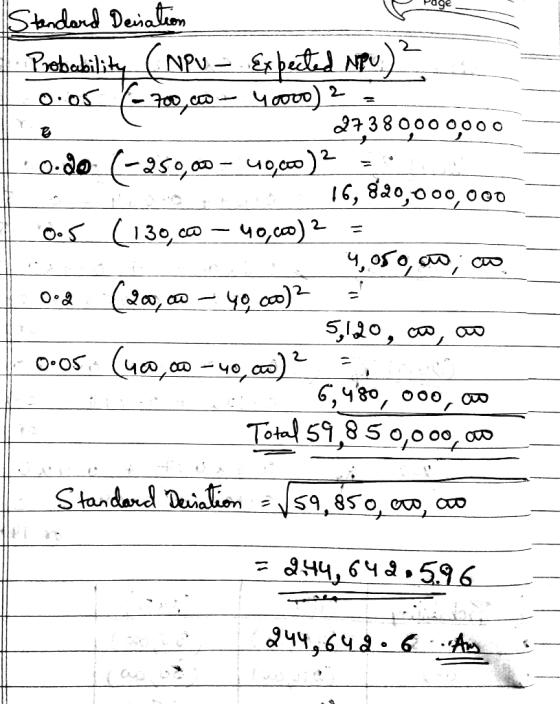 Page
Standard Deviation
Probability (NPV - Expected NPV)²
0.05 (-700,000 - 40000)² =
27,380,000,000
0.20 (-250,000 - 40,000)² =
16,820,000,000
0.5 (130,000 - 40,000)² =
4,050,000,000
0.2 (200,000 - 40,000)² =
5,120,000,000
0.05 (400,000 - 40,000)² =
6,480,000,000
Total 59,850,000,000
Standard Deviation = √59,850,000,000
= 244,642.596
244,642.6 Ans